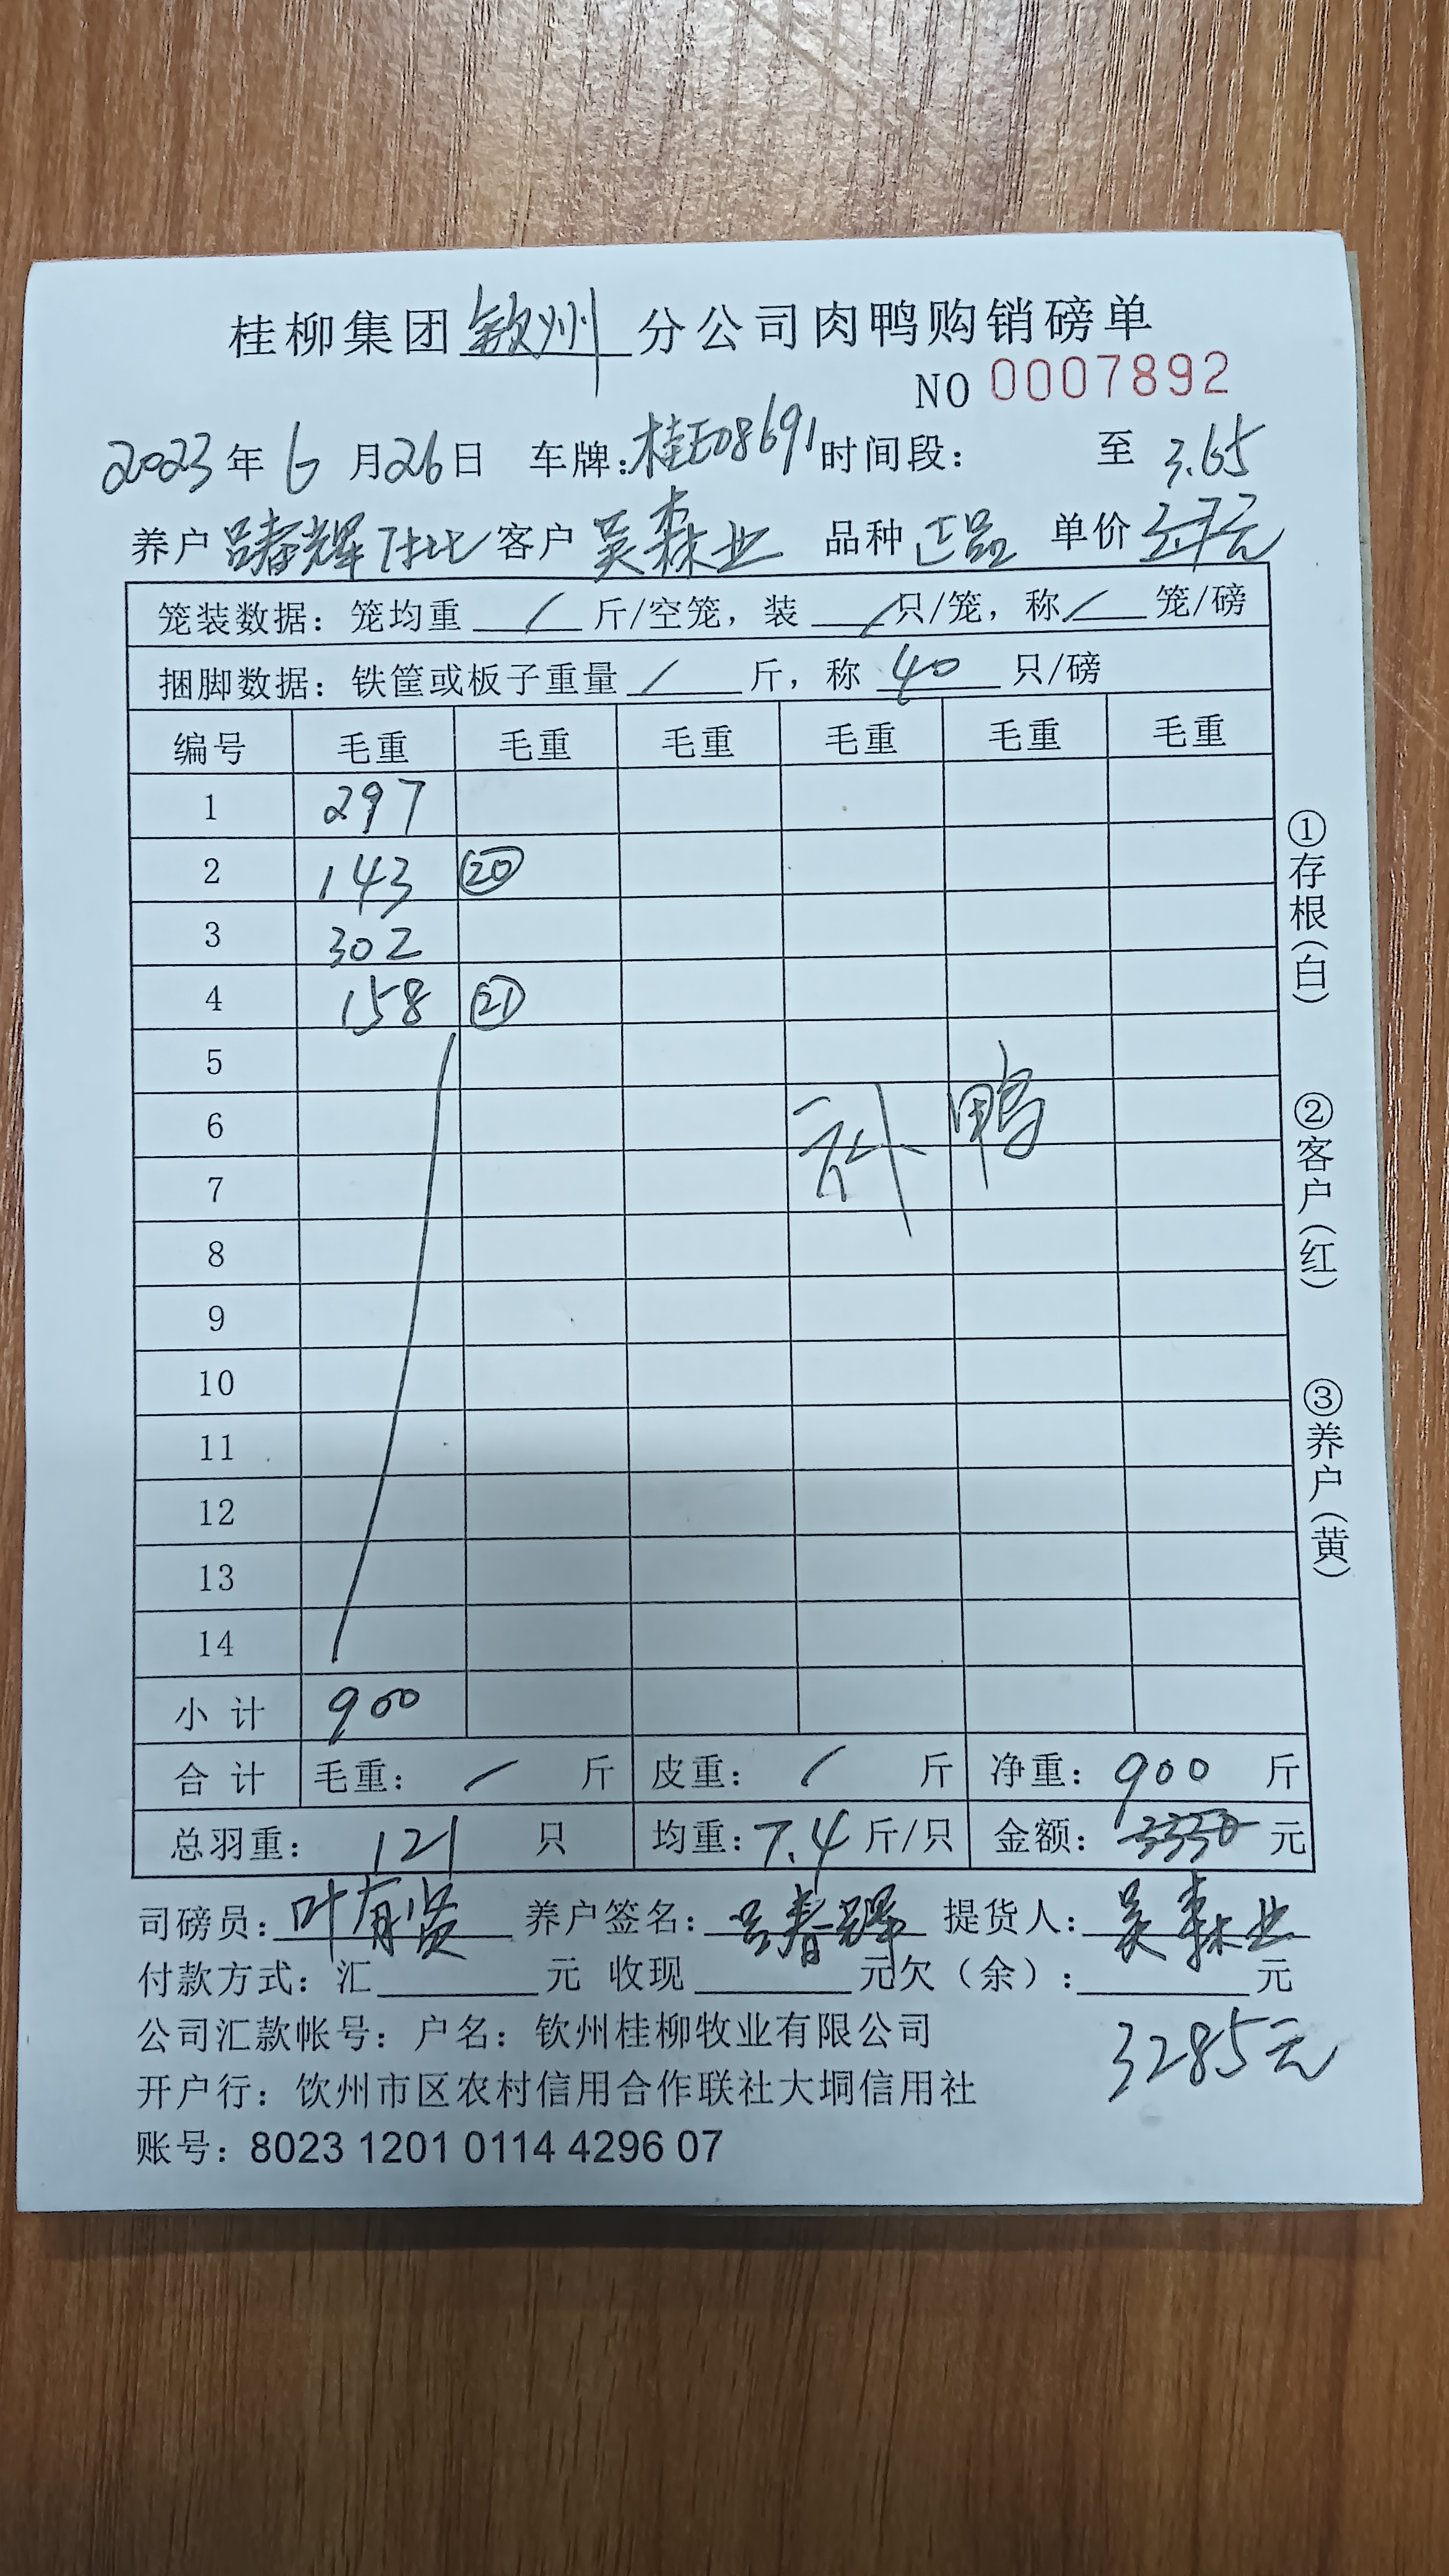 桂柳集团钦州分公司肉鸭购销磅单
NO 0007892
2023年6月26日 车牌:桂E08691时间段: 至 3.65
养户 吕春辉 客户 吴森业 品种 正品 单价 3.7元
笼装数据: 笼均重 / 斤/空笼, 装 / 只/笼, 称 / 笼/磅
捆脚数据: 铁筐或板子重量 / 斤, 称 40 只/磅
编号 毛重 毛重 毛重 毛重 毛重 毛重
1 297
2 143 ⑳
3 302
4 158 ㉑
5
6 补鸭
7
8
9
10
11
12
13
14
小计 900
合计 毛重: / 斤 皮重: / 斤 净重: 900 斤
总羽重: 121 只 均重: 7.4 斤/只 金额: 3330 元
司磅员: 叶有贤 养户签名: 吕春辉 提货人: 吴森业
付款方式: 汇 元 收现 元欠(余): 元
公司汇款帐号: 户名: 钦州桂柳牧业有限公司
3285元
开户行: 饮州市区农村信用合作联社大垌信用社
账号: 8023 1201 0114 4296 07
①存根(白)
②客户(红)
③养户(黄)